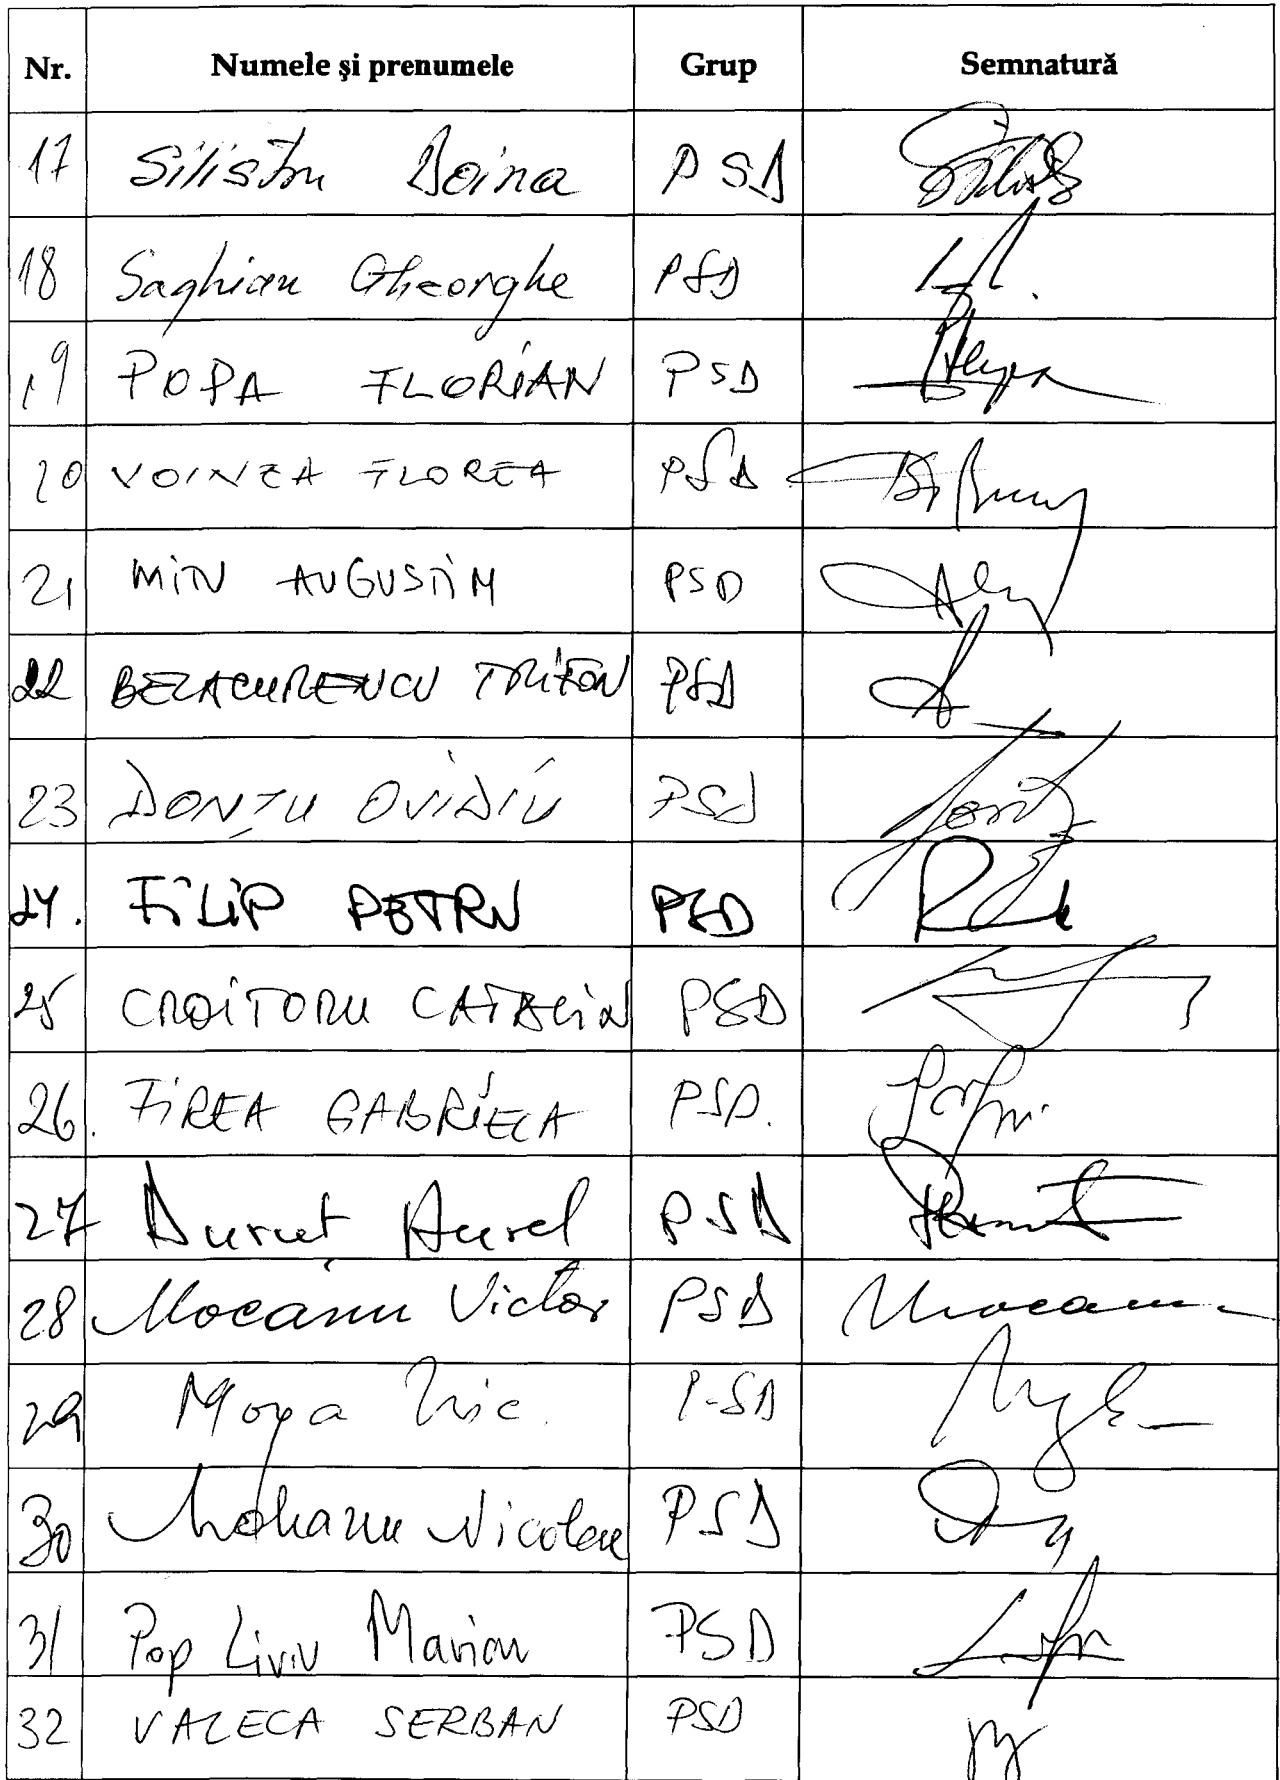 Nr. Numele și prenumele Grup Semnatură
17 Silistru Doina PSD
18 Saghian Gheorghe PSD
19 POPA FLORIAN PSD
20 VOINEA FLOREA PSD
21 MITU AUGUSTIN PSD
22 BELACURENCU TRIFON PSD
23 DONȚU OVIDIU PSD
24. FILIP PETRU PSD
25 CROITORU CATALIN PSD
26. FIREA GABRIELA PSD.
27 Duruț Aurel PSD
28 Mocanu Victor PSD Mocanu
29 Moga Nic. PSD
30 Mohanu Nicolae PSD
31 Pop Liviu Marian PSD
32 VALECA SERBAN PSD